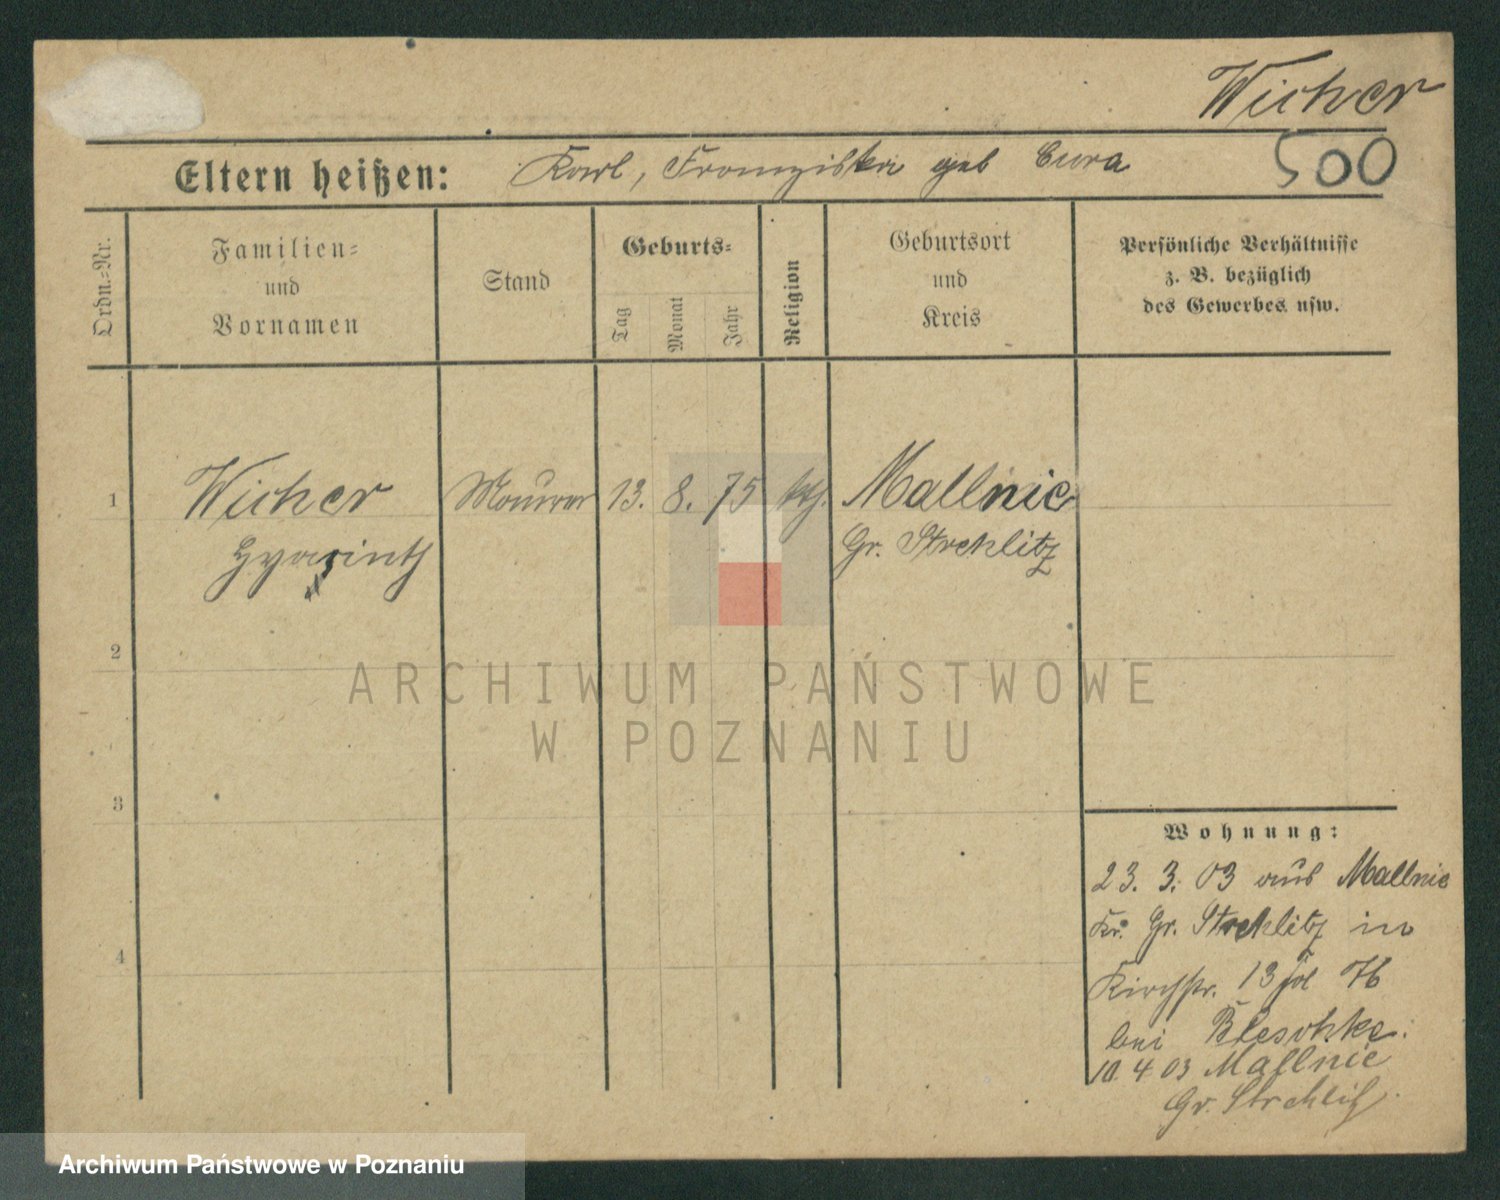 Wicher
500
Eltern heißen: Karl, Franziska geb Cura
Ordn.=Nr.
Familien=
und
Vornamen
Stand
Geburts=
Tag
Monat
Jahr
Religion
Geburtsort
und
Kreis
Persönliche Verhältnisse
z. B. bezüglich
des Gewerbes usw.
1
Wicher Maurer 13. 8. 75 kth. Mallnie
Hyacinth
Gr. Strehlitz
2
ARCHIWUM PAŃSTWOWE
W POZNANIU
3
4
Wohnung:
23. 3. 03 aus Mallnie
Kr. Gr. Strehlitz in
Kirchstr. 13 fol 76
bei Bleschke.
10. 4 03 Mallnie
Gr. Strehlitz.
Archiwum Państwowe w Poznaniu